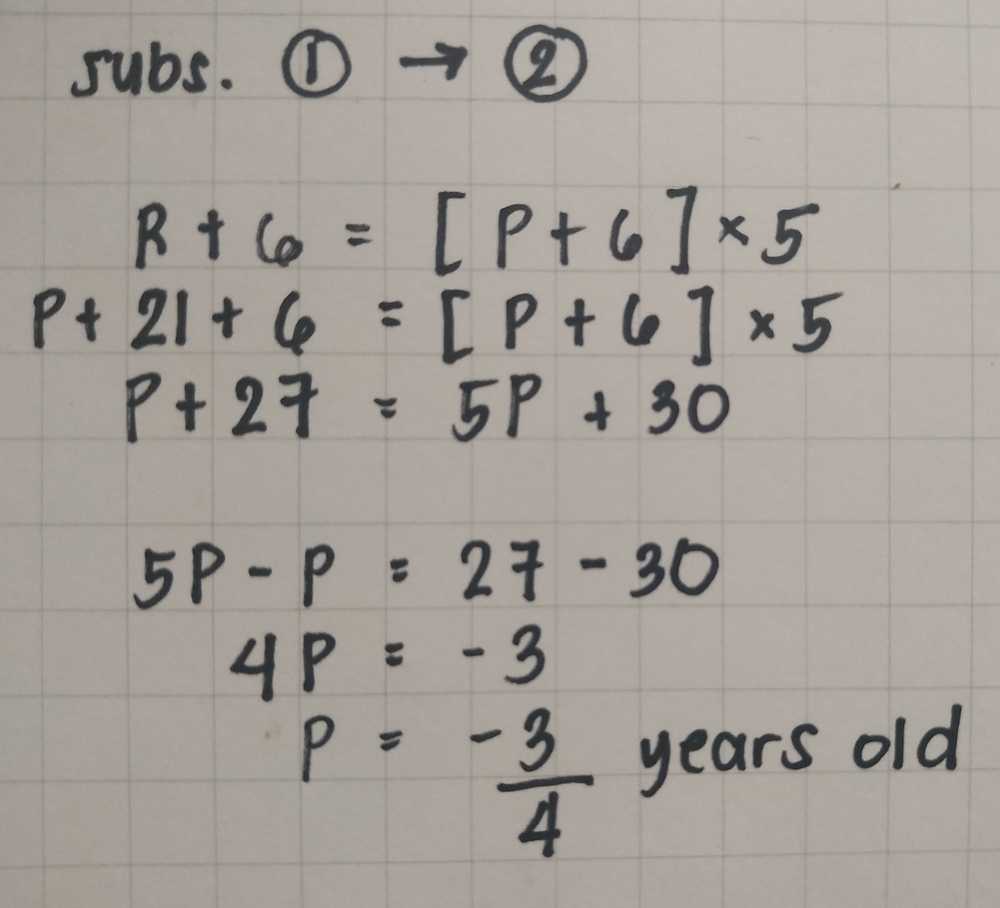 subs. ① → ②
R + 6 = [ P + 6 ] × 5
P + 21 + 6 = [ P + 6 ] × 5
P + 27 = 5P + 30
5P - P = 27 - 30
4P = - 3
P = - 3/4 years old